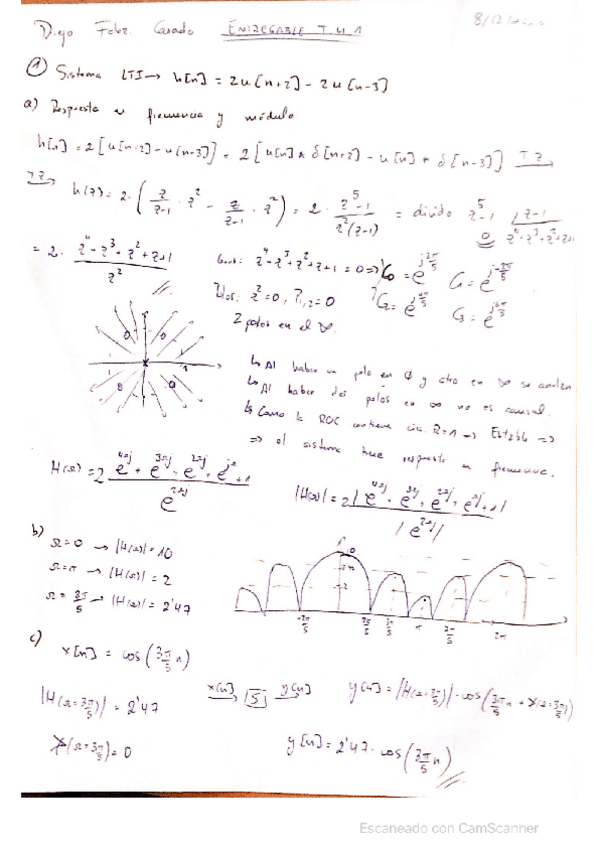 Diego Fdez. Casado ENTREGABLE T.4 1 8/12/
① Sistema LTI → h[n] = 2u[n+2] - 2u[n-3]
a) Respuesta en frecuencia y módulo
h[n] = 2[u[n+2] - u[n-3]] = 2[u[n] * δ[n+2] - u[n] * δ[n-3]] T.Z →
T.Z → h(z) = 2·(z/(z-1) · z^2 - z/(z-1) · z^2) = 2 · (z^5-1)/(z^2(z-1)) = divido z^5-1 | z-1
0 z^4+z^3+z^2+z+1
= 2 · (z^4+z^3+z^2+z+1)/z^2
z^4+z^3+z^2+z+1 = 0 ⇒ C0 = e^{j2π/5} C1 = e^{j-2π/5}
C2 = e^{j4π/5} C3 = e^{j6π/5}
Polos: z^2 = 0, P1,2 = 0
2 polos en el ∞.
↳ Al haber un polo en 0 y otro en ∞ se anulan
↳ Al haber dos polos en ∞ no es causal.
↳ Como la ROC contiene circ. R=1 → Estable ⇒
⇒ el sistema tiene respuesta en frecuencia.
H(Ω) = 2 (e^{4Ωj} + e^{3Ωj} + e^{2Ωj} + e^{jΩ} + 1)/e^{2Ωj}
|H(Ω)| = 2 |e^{4Ωj} + e^{3Ωj} + e^{2Ωj} + e^{Ωj} + 1| / |e^{2Ωj}|
b)
Ω=0 → |H(Ω)| = 10
Ω=π → |H(Ω)| = 2
Ω = 3π/5 → |H(Ω)| = 2'47
10
2
-2π/5 2π/5 3π/5 π 2π
c)
x[n] = cos(3π/5 n)
|H(Ω=3π/5)| = 2'47
x[n] → S → y[n]
y[n] = |H(Ω=3π/5)| · cos(3π/5 n + ∢(Ω=3π/5))
∢(Ω=3π/5) = 0
y[n] = 2'47 · cos(3π/5 n)
Escaneado con CamScanner